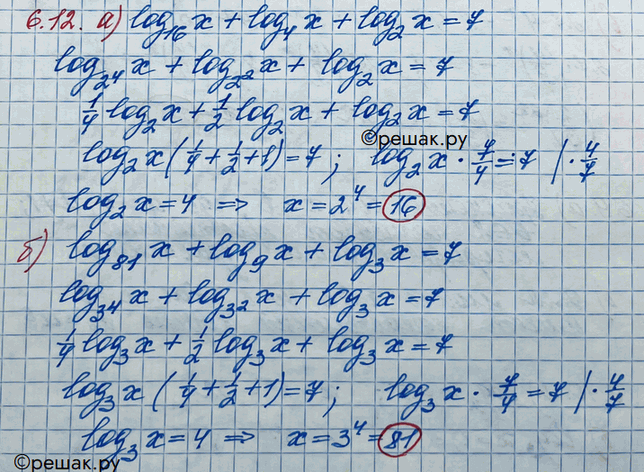 6.12. а) log₁₆x + log₄x + log₂x = 7
log_{2^4} x + log_{2^2} x + log₂x = 7
1/4 log₂x + 1/2 log₂x + log₂x = 7
©решак.ру
log₂x (1/4 + 1/2 + 1) = 7 ; log₂x · 7/4 = 7 | · 4/7
log₂x = 4 => x = 2⁴ = 16
©решак.ру
б) log₈₁x + log₉x + log₃x = 7
log_{3^4} x + log_{3^2} x + log₃x = 7
1/4 log₃x + 1/2 log₃x + log₃x = 7
log₃x (1/4 + 1/2 + 1) = 7 ; log₃x · 7/4 = 7 | · 4/7
log₃x = 4 => x = 3⁴ = 81
©решак.ру